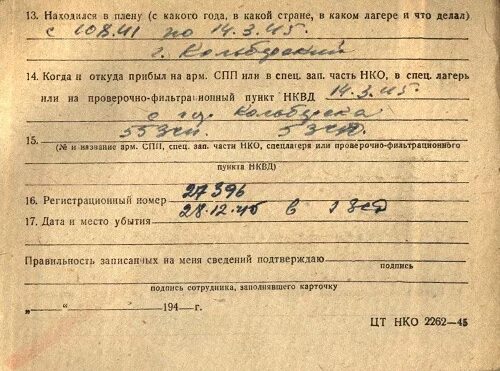 13. Находился в плену (с какого года, в какой стране, в каком лагере и что делал)
с 10.8.41 по 14.3.45.
г.
14. Когда и откуда прибыл на арм. СПП или в спец. зап. часть НКО, в спец. лагерь
или на проверочно-фильтрационный пункт НКВД 14.3.45.
с гор.
15. 55 зсп. 5 зсд.
(№ и название арм. СПП, спец. зап. части НКО, спецлагеря или проверочно-фильтрационного
пункта НКВД)
16. Регистрационный номер 27396
17. Дата и место убытия 28.12.45 в 1 зсд
Правильность записанных на меня сведений подтверждаю
подпись
подпись сотрудника, заполнявшего карточку
„ “ 194 — г.
ЦТ НКО 2262—45